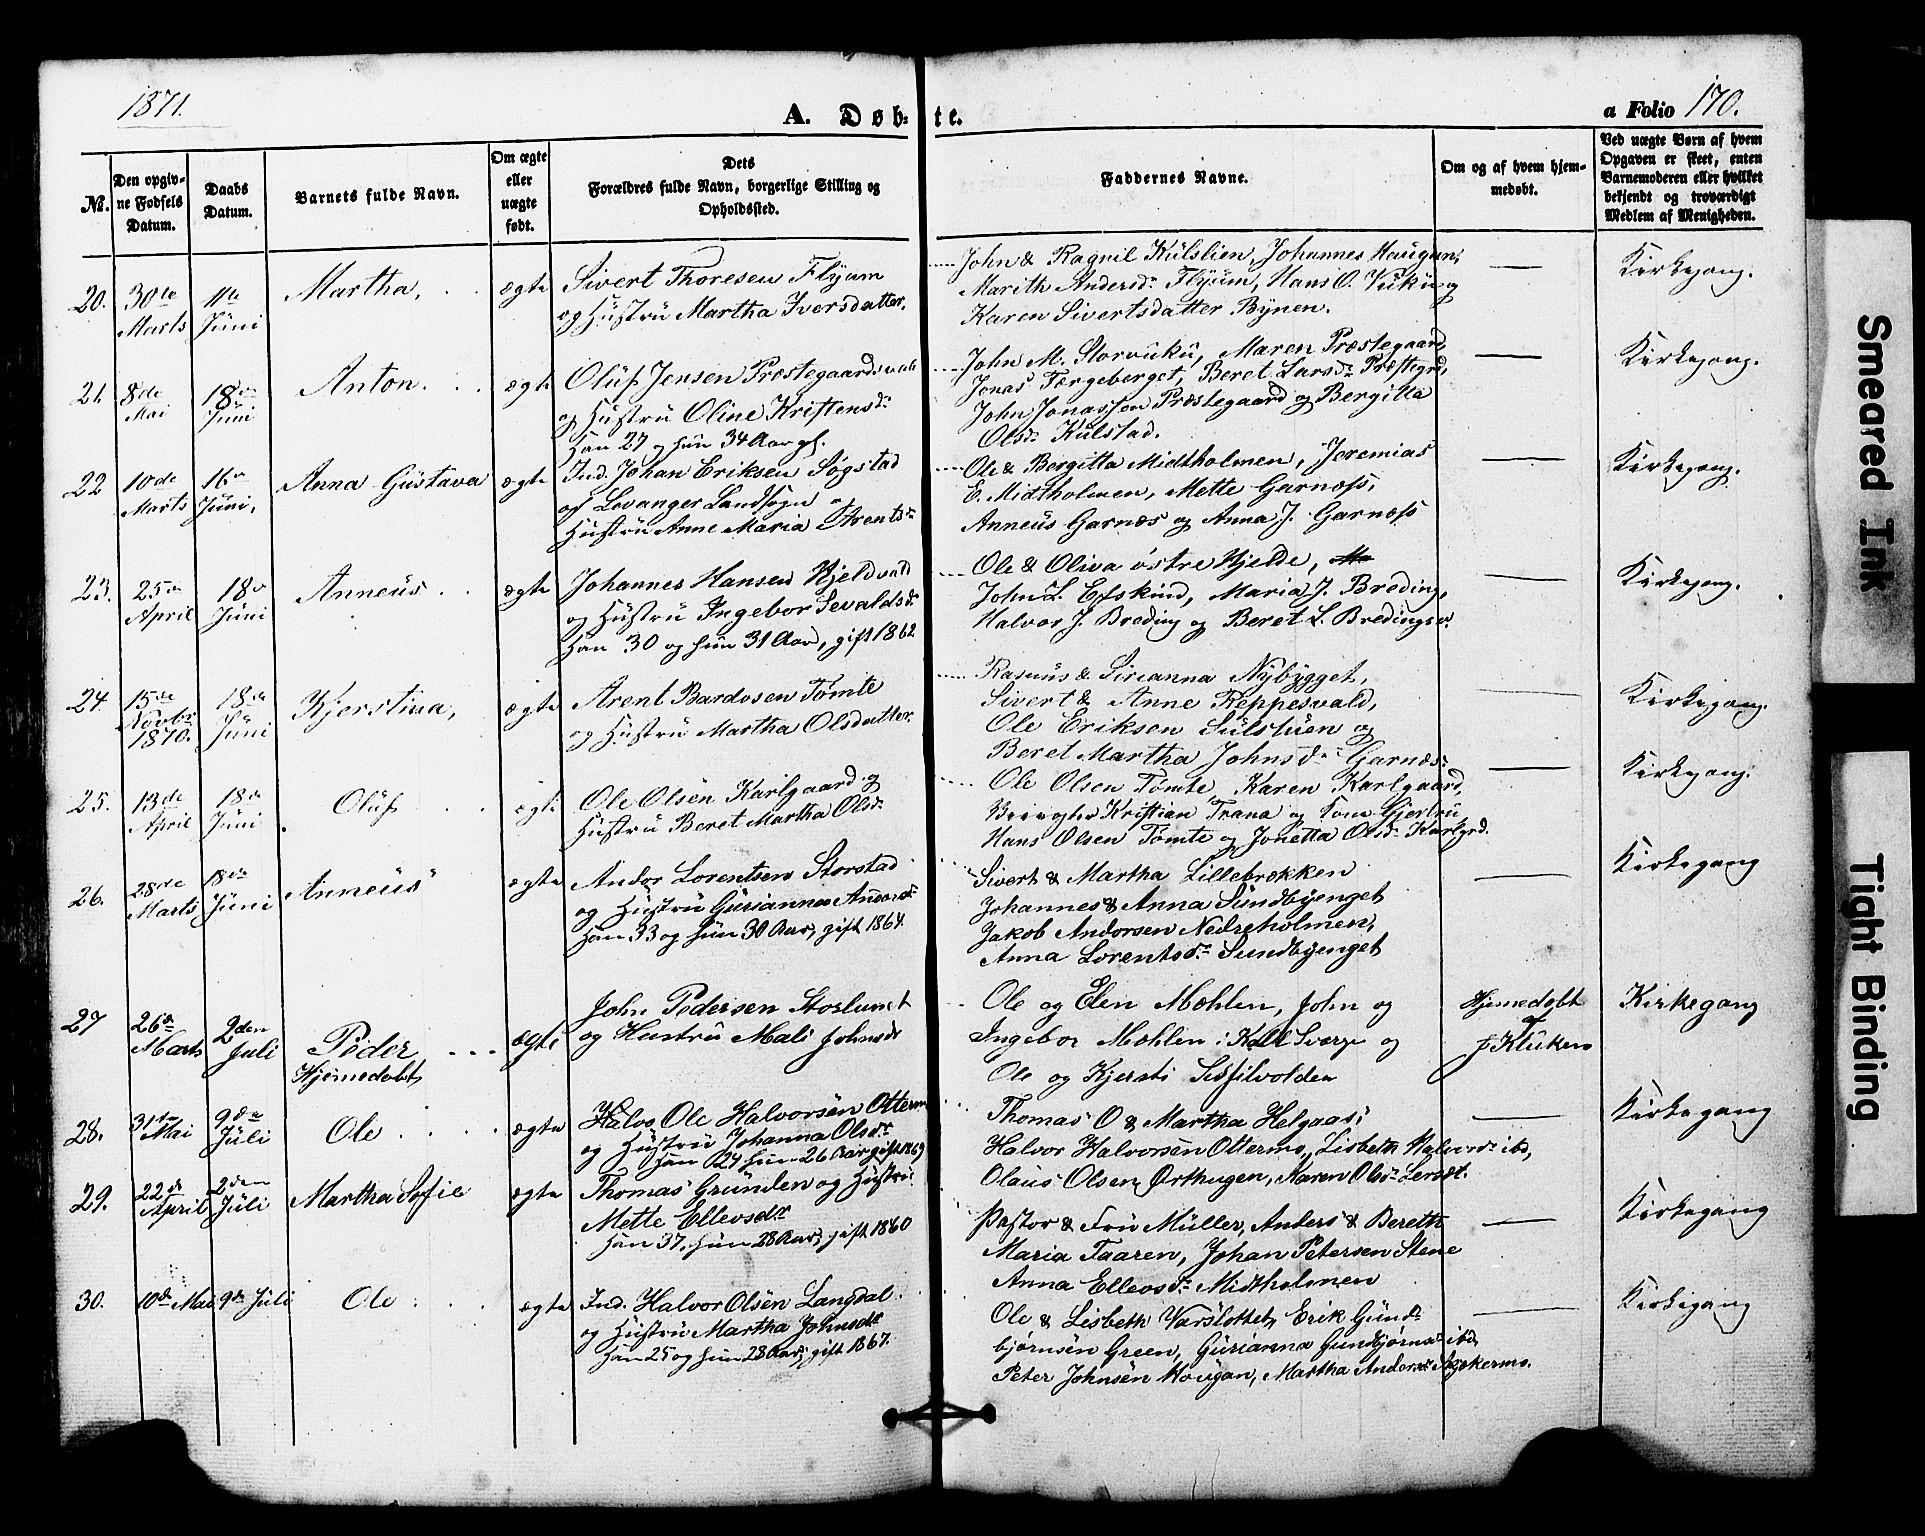 1871.
A. Døbte.
a Folio 170.
No.
Den opgivne Fødsels Datum.
Daabs Datum.
Barnets fulde Navn.
Om ægte eller uægte født.
Dets Forældres fulde Navn, borgerlige Stilling og Opholdssted.
Faddernes Navne.
Om og af hvem hjemmedøbt.
Ved uægte Børn af hvem Opgaven er skeet, enten Barnemoderen eller hvilket bekjendt og troværdigt Medlem af Menigheden.
20. 30te Marts 11te Juni Martha, ægte
Sivert Thoresen Flyum
og Hustru Martha Iversdatter.
John & Ragnil Kulslien, Johannes Haugan,
Marith Andersd. Flyum, Hans O. Vuku og
Karen Sivertsdatter Bynen.
— Kirkegang.
21. 8de Mai 18de Juni Anton. ægte
Oluf Jensen Præstegaardsvald
og Hustru Oline Kristensd.
Han 27 og hun 34 Aar gl.
John M. Storvuku, Maren Præstegaard,
Jonas Færgeberget, Beret Larsd. Præstegrd,
John Jonassen Præstegaard og Bergitta
Olsd. Kulstad.
— Kirkegang.
22 10de Marts 16de Juni, Anna Gustava ægte
Ind. Johan Eriksen Søgstad
af Levanger Landsogn og
Hustru Anne Maria Arentsd.
Ole & Bergitta Midtholmen, Jeremias
E. Midtholmen, Mette Garnæss,
Anneus Garnæs og Anna J. Garnæss
— Kirkegang.
23. 25de April 18de Juni Anneus. ægte
Johannes Hansen Hjeldvald
og Hustru Ingebor Sevaldsd.
Han 30 og hun 31 Aar, gift 1862
Ole & Oliva østre Hjelde,
John L. Efskind, Maria J. Breding,
Halvor J. Breding og Beret L. Bredingsv.
— Kirkegang.
24. 15de Novbr 1870. 18de Juni Kjerstina, ægte
Arent Bardosen Tømte
og Hustru Martha Olsdatter.
Rasmus & Sirianna Nybygget,
Sivert & Anne Reppesvald,
Ole Eriksen Sulstuen og
Beret Martha Johnsd. Garnæs.
— Kirkegang.
25. 13de April 18de Juni Oluf ægte
Ole Olsen Karlgaard og
Hustru Beret Martha Olsd.
Ole Olsen Tømte, Karen Karlgaard,
Kristian Trana og Kone Gjertru,
Hans Olsen Tømte og Jonetta Olsd. Karlgrd.
— Kirkegang.
26. 28de Marts 18de Juni Anneus ægte
Andor Lorentsen Storstad
og Hustru Guriannea Andorsd.
Han 33 og hun 30 Aar, gift 1864.
Sivert & Martha Lillebrækken
Johannes & Anna Sundbyenget
Jakob Andorsen Nedreholmen,
Anna Lorentsd. Sundbyenget
— Kirkegang
27 26de Marts 2den Juli Peder, ægte
Hjemedøbt
John Pedersen Stoslunet
og Hustru Mali Johnsdt
Ole og Elen Mæhlen, John og
Ingebor Mæhlen i Kall Sverge og
Ole og Kjersti Sisfilvolden
Hjemedøbt
af
J. Kluken
Kirkegang
28. 31te Mai 9de Juli Ole ægte
Ole Halvorsen Ottermo
og Hustru Johanna Olsdt.
Han 24 hun 26 Aar gift 1869
Thomas O & Martha Helgaas,
Halvor Halvorsen Ottermo, Lisbeth Halvord. ibd,
Olaus Olsen Ørthugen, Karen Olsd. Leræt.
— Kirkegang
29. 22de April 2den Juli Martha Sofie ægte
Thomas Grunden og Hustru
Mette Ellevsdt
Han 37, hun 28 Aar, gift 1860
Pastor & Fru Müller, Anders & Bereth
Maria Faaren, Johan Petersen Stene
Anna Ellevsd. Midtholmen
— Kirkegang
30. 10de Mai 9de Juli Ole ægte
Ind. Halvor Olsen Langdal.
og Hustru Martha Johnsdt
Han 25 og hun 28 Aar, gift 1867.
Ole & Lisbeth Varslottet, Erik Gund-
bjørnsen Green, Gurianna Gunbjørnsd. ibd,
Peter Johnsen Hougan, Martha Andersd. Agekermo.
— Kirkegang
Smeared Ink
Tight Binding